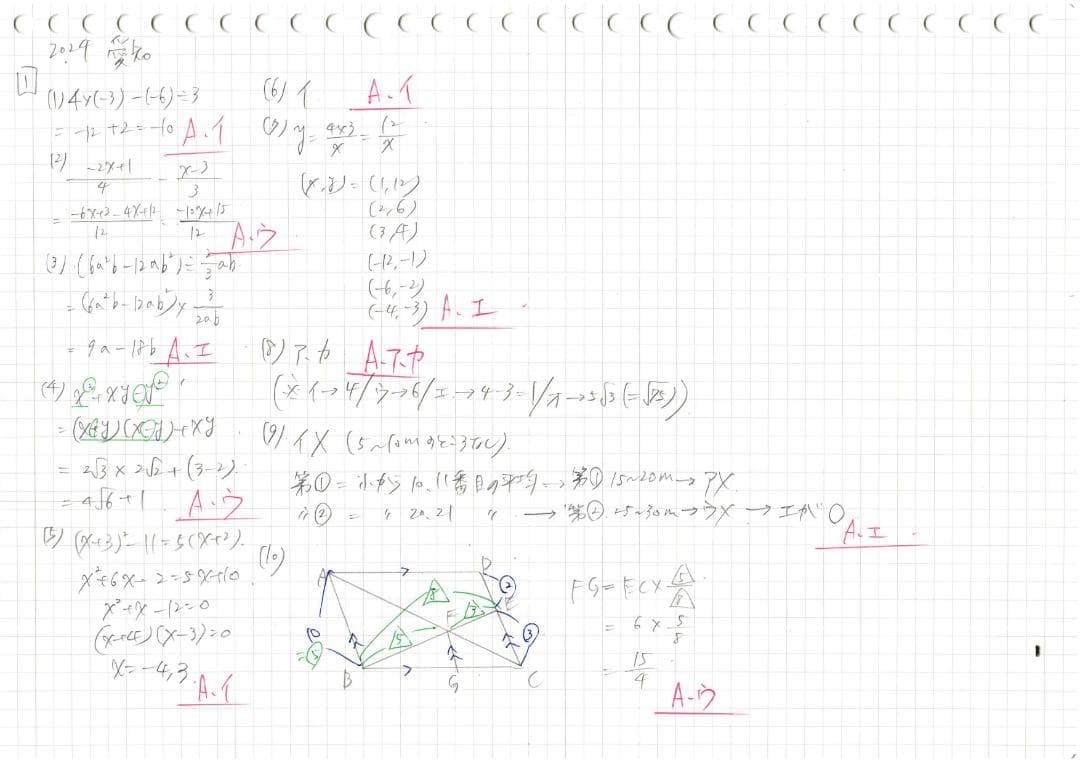 2024 愛知
1
(1) 4×(-3)-(-6)÷3
= -12+2=-10 A.イ
(2) (-2x+1)/4 - (x-3)/3
= (-6x+3-4x+12)/12 = (-10x+15)/12
A.ウ
(3) (6a²b-12ab²)÷2/3ab
=(6a²b-12ab²)×3/2ab
= 9a-18b A.エ
(4) x²+xy-y²
=(x+y)(x-y)+xy
= 2√3×2√2+(3-2)
= 4√6+1 A.ウ
(5) (x+3)²-11=5(x+2)
x²+6x-2=5x+10
x²+x-12=0
(x+4)(x-3)=0
x=-4,3
A.イ
(6) イ A.イ
(7) y=4×3/x=12/x
(x,y)=(1,12)
(2,6)
(3,4)
(-12,-1)
(-6,-2)
(-4,-3) A.エ
(8) ア、カ A.ア、カ
(※イ→4/ウ→6/エ→4-3=1/オ→5√3(=√75))
(9) イX (5~10mのとき
第①=小から10、11番目の平均→第①15~20m→アX
〃②= 〃 20,21 〃 →第②25~30m→ウX→エが○
A.エ
(10)
A D
② E
8
F 3
10 5 ③
=⑤
B G C
FG=EC×5/8
= 6×5/8
= 15/4
A.ウ